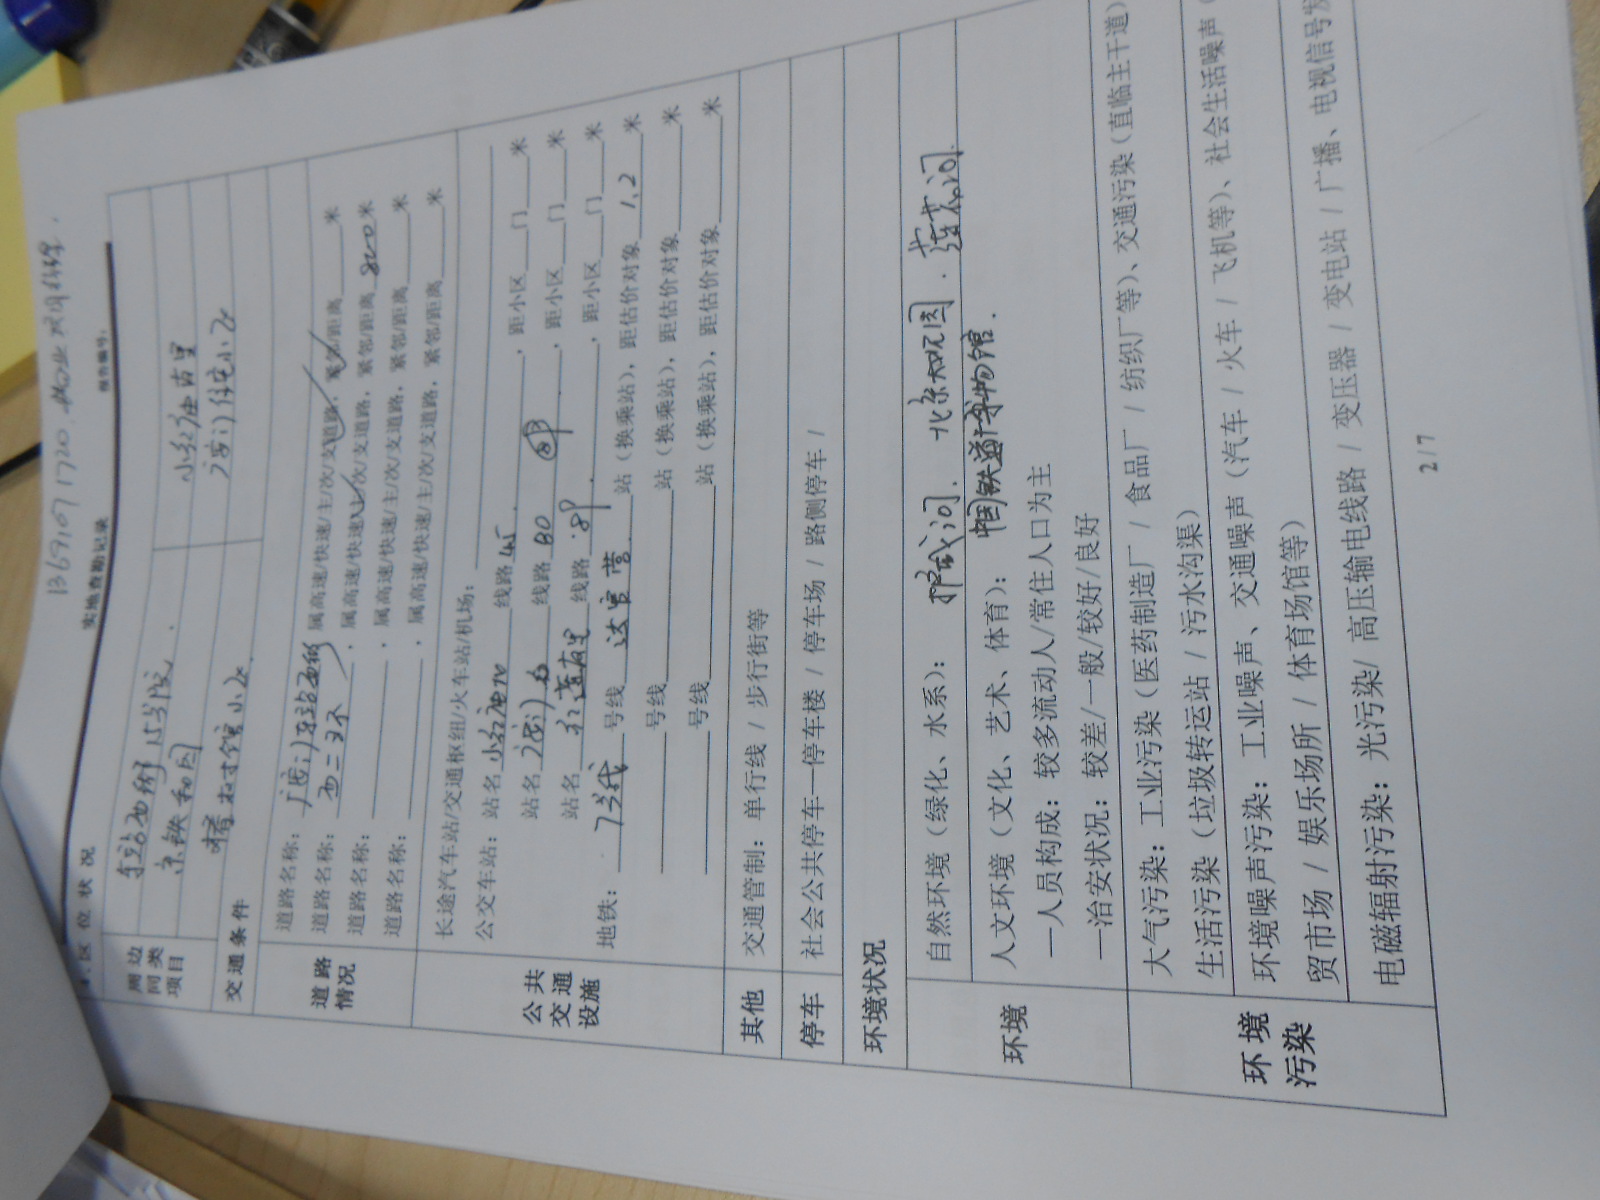 13691071720.物业
实地查勘记录 报告编号:
区位状况
周边同类项目 车站西街15号院 小红庙南里
京铁和园 广安门住宅小区
椿树馆小区
交通条件
道路情况 道路名称: 广安门车站西街 属高速/快速/主/次/支道路, 紧邻/距离 米
道路名称: 西二环 , 属高速/快速/主/次/支道路, 紧邻/距离 800 米
道路名称: , 属高速/快速/主/次/支道路, 紧邻/距离 米
道路名称: , 属高速/快速/主/次/支道路, 紧邻/距离 米
公共交通设施 长途汽车站/交通枢纽/火车站/机场:
公交车站: 站名 小红庙 线路 45 , 距小区 门 米
站名 线路 80 , 距小区 门 米
站名 红莲南里 线路 89 , 距小区 门 米
地铁: 7号线 号线 达官营 站(换乘站), 距估价对象 1.2 米
号线 站(换乘站), 距估价对象 米
号线 站(换乘站), 距估价对象 米
其他 交通管制: 单行线 / 步行街等
停车 社会公共停车—停车楼 / 停车场 / 路侧停车 /
环境状况
环境 自然环境(绿化、水系): 护城河. 北京大观园. 莲花河.
人文环境(文化、艺术、体育): 中国铁道博物馆.
—人员构成: 较多流动人/常住人口为主
—治安状况: 较差/一般/较好/良好
环境污染 大气污染: 工业污染(医药制造厂 / 食品厂 / 纺织厂等)、交通污染(直临主干道)
生活污染(垃圾转运站 / 污水沟渠)
环境噪声污染: 工业噪声、交通噪声(汽车 / 火车 / 飞机等)、社会生活噪声(
贸市场 / 娱乐场所 / 体育场馆等)
电磁辐射污染: 光污染/ 高压输电线路 / 变压器 / 变电站 / 广播、电视信号发
2/7